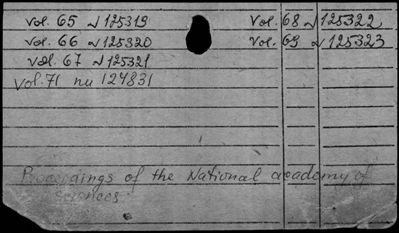 vol. 65 N 125319
vol. 66 N 125320
vol. 67 N 125321
vol. 71 nu 124831
vol. 68 N 125322
vol. 69 N 125323
Proceedings of the National academy of
Sciences